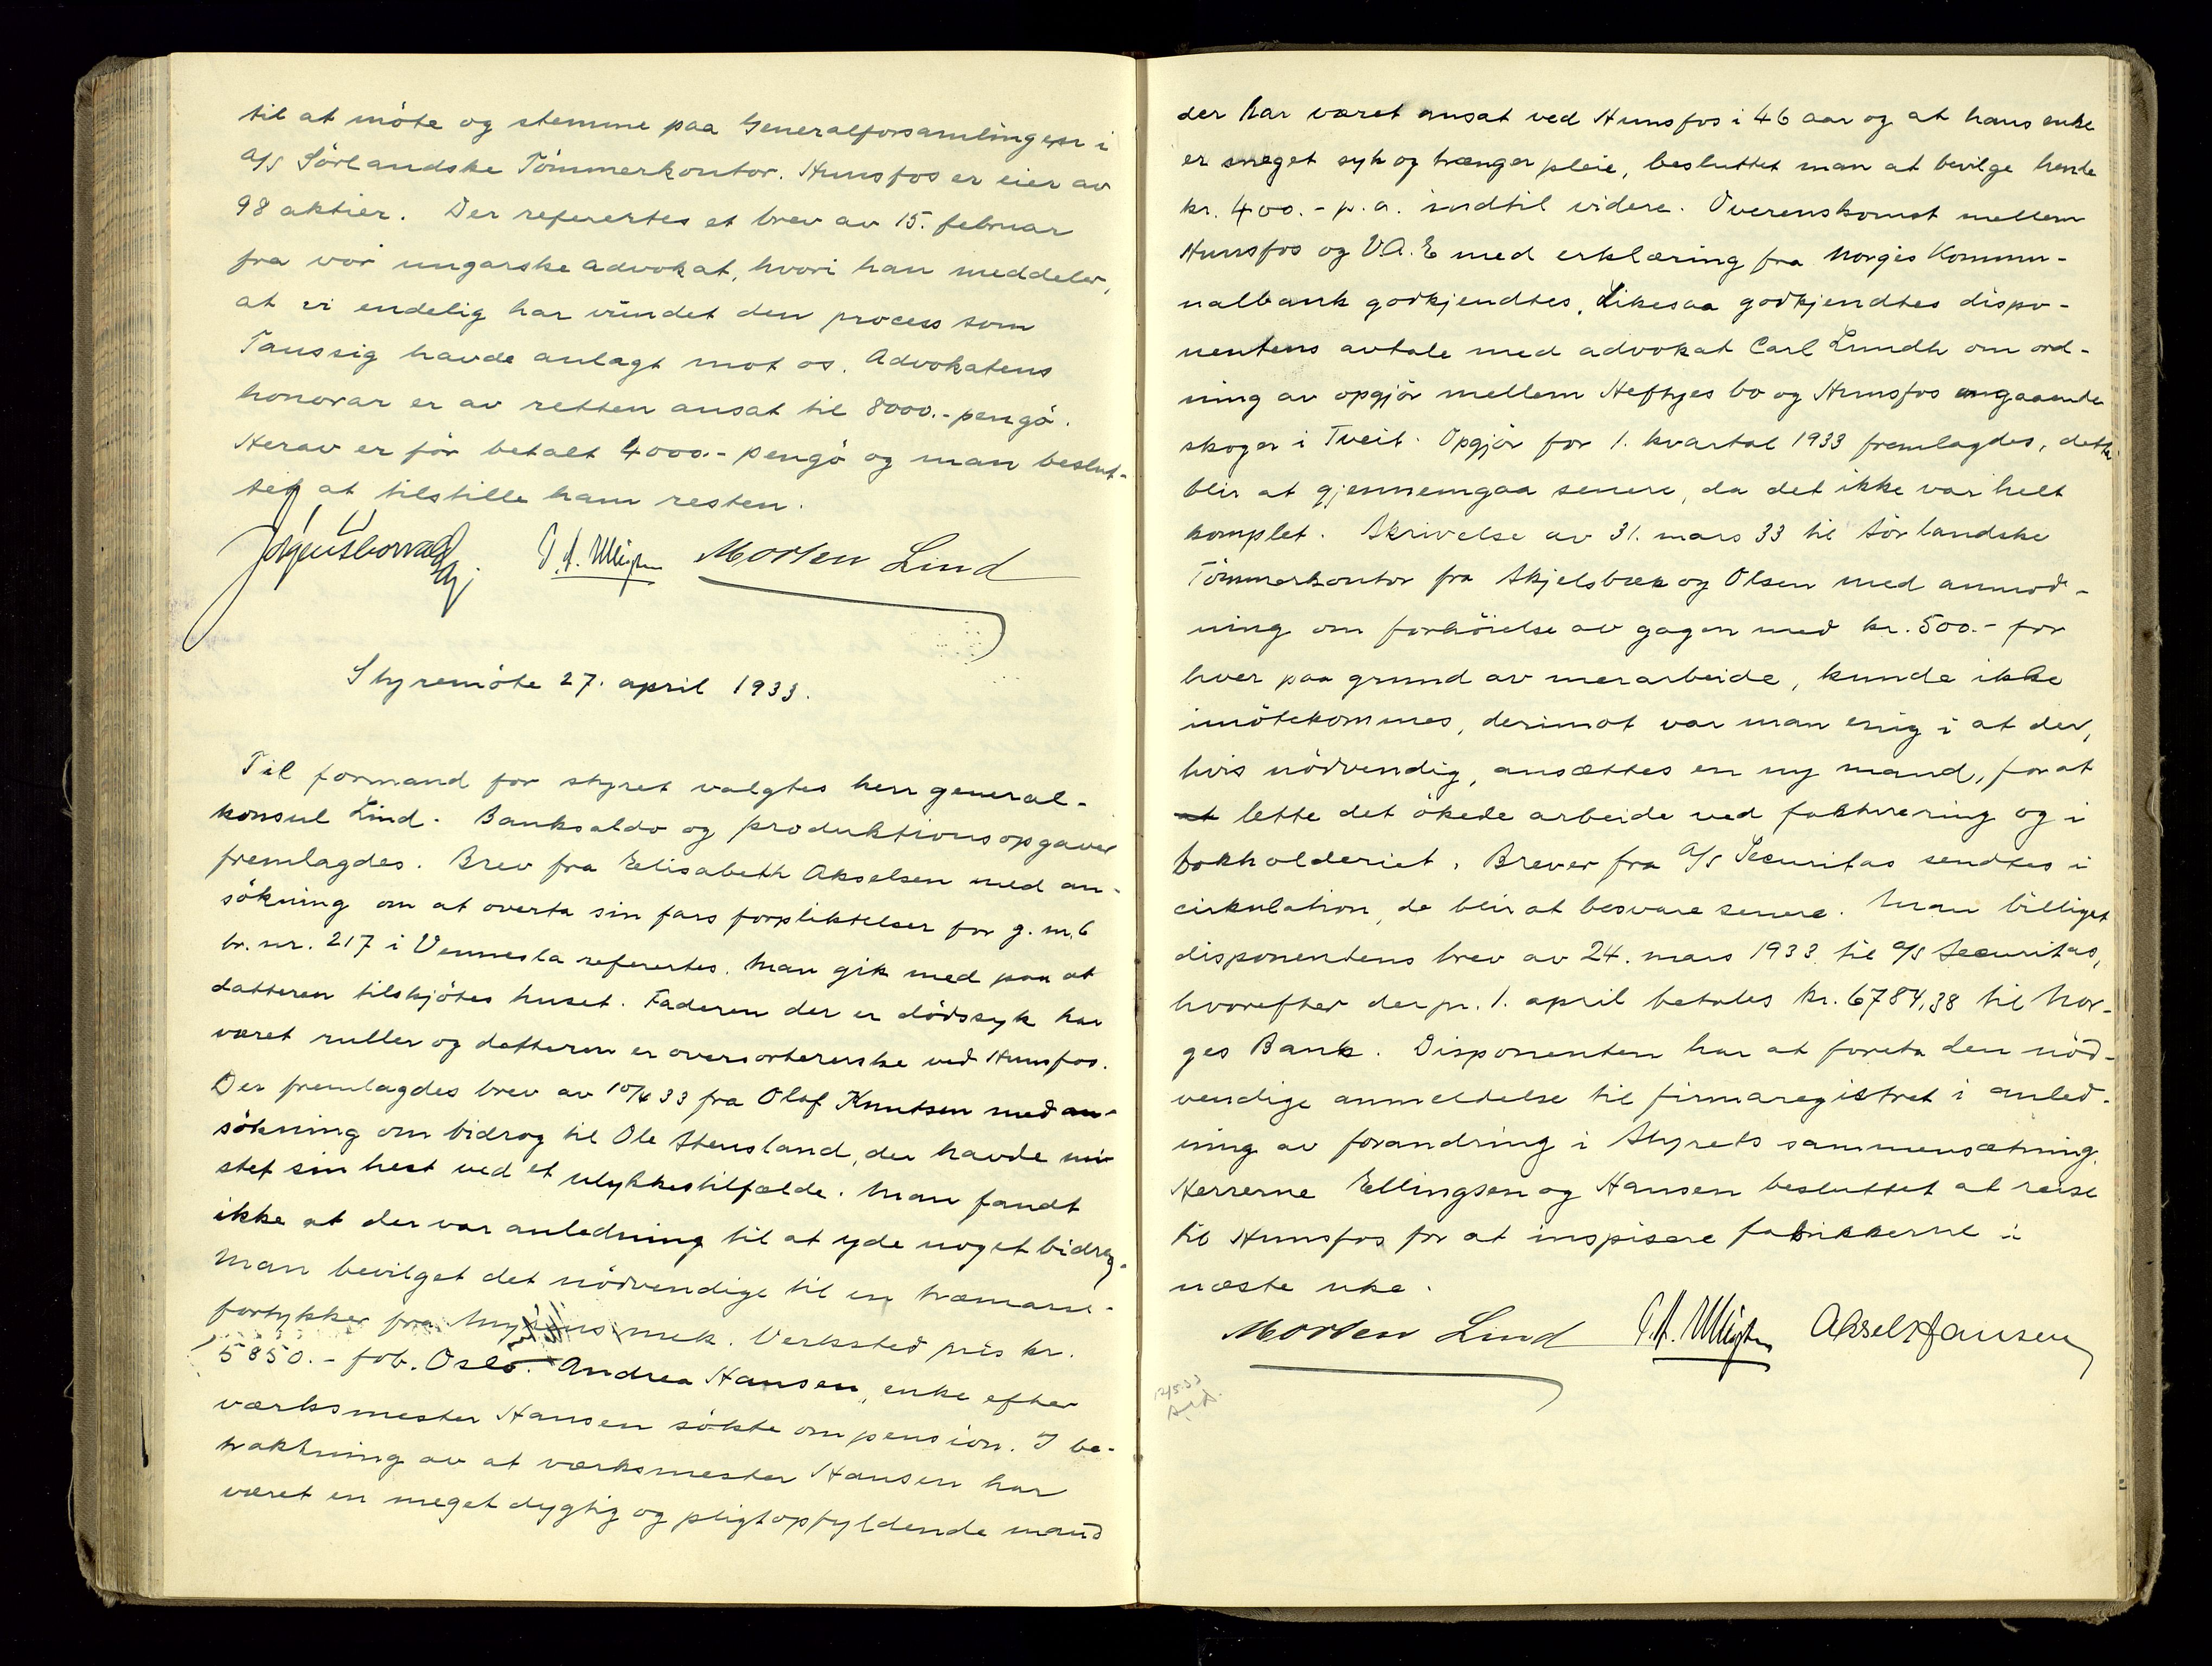 til at möte og stemme paa Generalforsamlingen i
A/S Sörlandske Tömmerkontor. Hunsfos er eier av
98 aktier. Der refereres et brev av 15. februar
fra vor ungarske advokat, hvori han meddeler,
at vi endelig har vundet den process som
Taussig havde anlagt mot os. Advokatens
honorar er av retten ansat til 8000.- pengö.
Herav er för betalt 4000.- pengö og man beslut-
tet at tilstille ham resten.
Morten Lind
Styremöte 27. april 1933.
Til formand for styret valgtes herr general-
konsul Lind. Banksaldo og produktionsopgaver
fremlagdes. Brev fra Elisabeth Akselsen med an-
sökning om at overta sin fars forpliktelser for g. nr. 6
br. nr. 217 i Vennesla referertes. Man gik med paa at
datteren tilskjötes huset. Faderen der er dödssyk har
været ruller og datteren er oversorterske ved Hunsfos.
Der fremlagdes brev av 10/4 33 fra Olaf Knutsen med an-
sökning om bidrag til Ole Stensland, der havde mi-
stet sin hest ved et ulykkestilfælde. Man fandt
ikke at der var anledning til at yde noget bidrag.
Man bevilget det nödvendige til en træmasse-
fortykker fra Mysens mek. Verksted pris kr.
5850.- fob. Oslo. Andrea Hansen, enke efter
værksmester Hansen sökte om pension. I be-
traktning av at værksmester Hansen har
været en meget dygtig og pligtopfyldende mand
der har været ansat ved Hunsfos i 46 aar og at hans enke
er meget syk og trænger pleie, besluttet man at bevilge hende
kr. 400.- p. a. indtil videre. Overenskomst mellem
Hunsfos og V.A.E med erklæring fra Norges Kommu-
nalbank godkjendtes. Likesaa godkjendtes dispo-
nentens avtale med advokat Carl Lundh om ord-
ning av opgjör mellem Heftyes bo og Hunsfos angaaende
skoger i Tveit. Opgjör for 1. kvartal 1933 fremlagdes, dette
blir at gjennemgaa senere, da det ikke var helt
komplet. Skrivelse av 31. mars 33 til Sörlandske
Tömmerkontor fra Skjelsbæk og Olsen med anmod-
ning om forhöielse av gagen med kr. 500.- for
hver paa grund av merarbeide, kunde ikke
imötekommes, derimot var man enig i at der,
hvis nödvendig, ansættes en ny mand, for at
at lette det ökede arbeide ved fakturering og i
bokholderiet. Brever fra A/S Securitas sendtes i
cirkulation, de blir at besvare senere. Man billiget
disponentens brev av 24. mars 1933 til A/S Securitas,
hvorefter der pr. 1. april betales kr. 6784,38 til Nor-
ges Bank. Disponenten har at foreta den nöd-
vendige anmeldelse til firmaregistret i anled-
ning av forandring i Styrets sammensætning.
Herrerne Ellingsen og Hansen besluttet at reise
til Hunsfos for at inspisere fabrikkerne i
næste uke.
Morten Lind Aksel Hansen
12/5.33